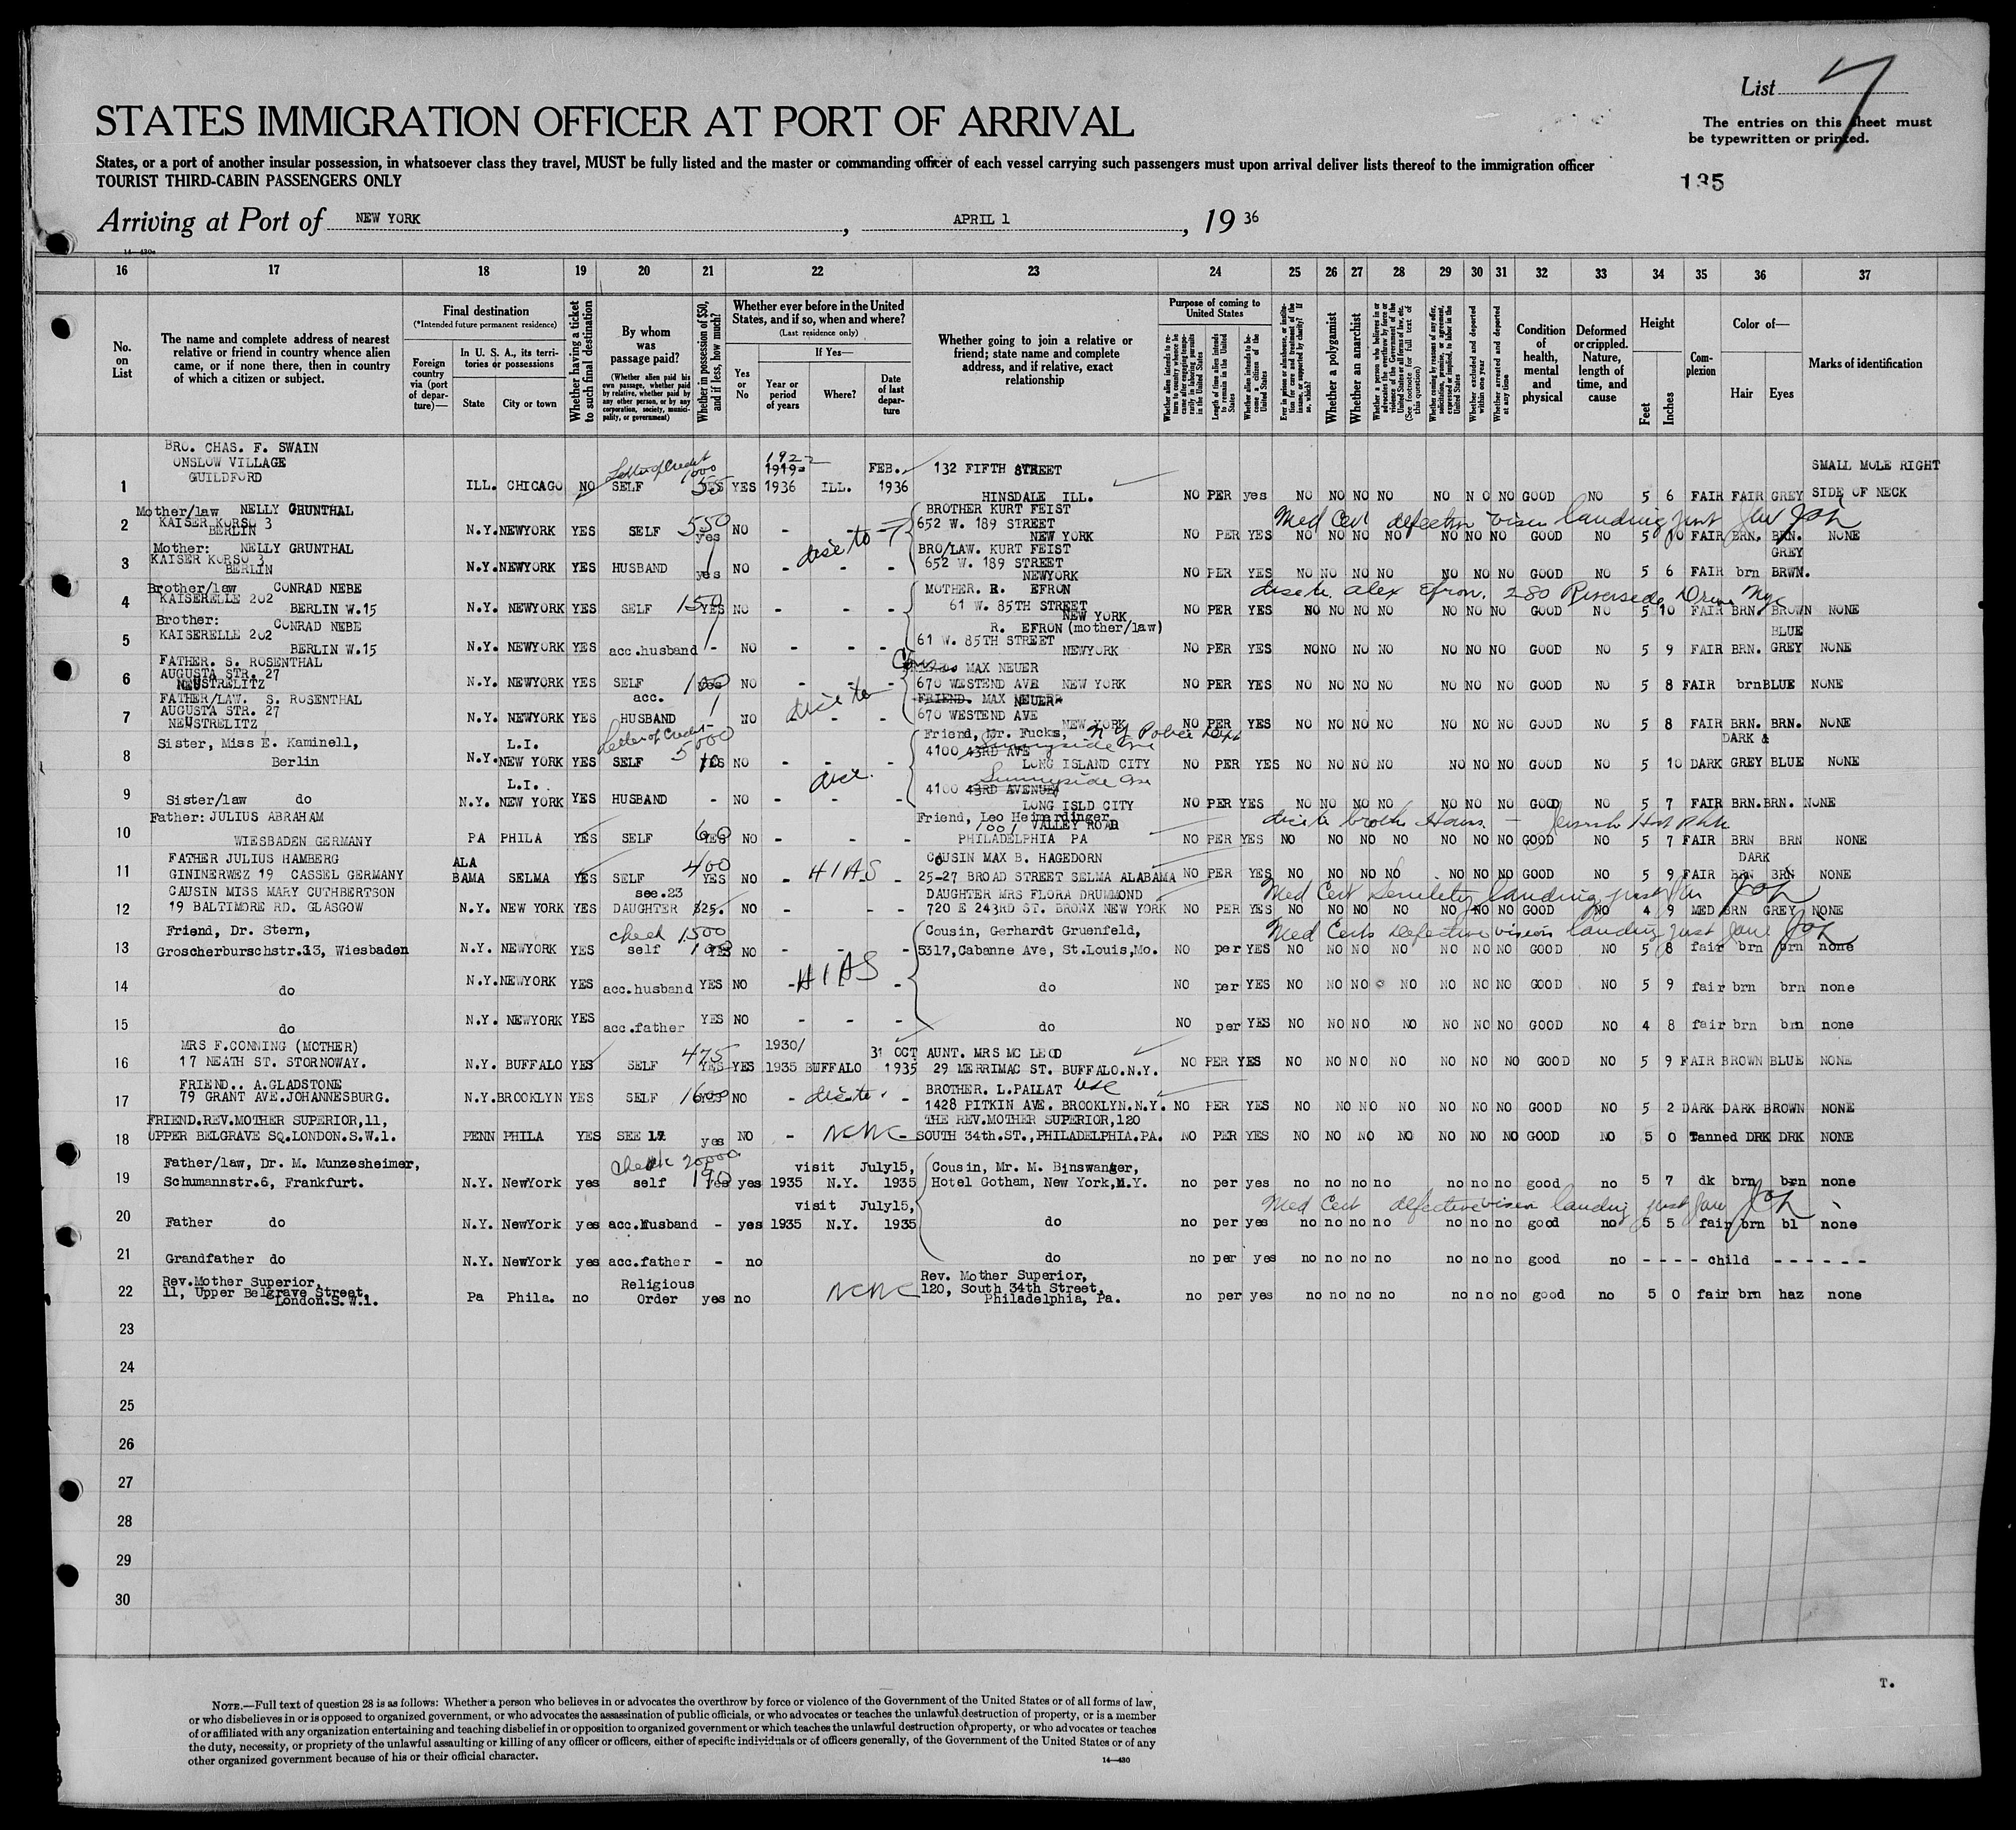 List 7
STATES IMMIGRATION OFFICER AT PORT OF ARRIVAL
The entries on this sheet must
be typewritten or printed.
States, or a port of another insular possession, in whatsoever class they travel, MUST be fully listed and the master or commanding officer of each vessel carrying such passengers must upon arrival deliver lists thereof to the immigration officer
TOURIST THIRD-CABIN PASSENGERS ONLY
135
Arriving at Port of NEW YORK, APRIL 1, 19 36
14—430
16 17 18 19 20 21 22 23 24 25 26 27 28 29 30 31 32 33 34 35 36 37
No. on List
The name and complete address of nearest relative or friend in country whence alien came, or if none there, then in country of which a citizen or subject.
Final destination
(*Intended future permanent residence)
Foreign country via (port of departure)—
In U. S. A., its territories or possessions
State
City or town
Whether having a ticket to such final destination
By whom was passage paid?
(Whether alien paid his own passage, whether paid by relative, whether paid by any other person, or by any corporation, society, municipality, or government)
Whether in possession of $50, and if less, how much?
Whether ever before in the United States, and if so, when and where?
(Last residence only)
Yes or No
If Yes—
Year or period of years
Where?
Date of last departure
Whether going to join a relative or friend; state name and complete address, and if relative, exact relationship
Purpose of coming to United States
Length of time alien intends to remain in the United States
Whether alien intends to become a citizen of the United States
Whether a polygamist
Whether an anarchist
Whether excluded and deported within one year
Whether arrested and deported at any time
Condition of health, mental and physical
Deformed or crippled. Nature, length of time, and cause
Height
Feet
Inches
Complexion
Color of—
Hair
Eyes
Marks of identification
BRO. CHAS. F. SWAIN
ONSLOW VILLAGE
GUILDFORD
1 ILL. CHICAGO NO SELF Letter of Credit 1000 55 YES YES 1922 1919- 1936 ILL. FEB. 1936 132 FIFTH STREET
HINSDALE ILL. NO PER yes NO NO NO NO NO NO NO GOOD NO 5 6 FAIR FAIR GREY SMALL MOLE RIGHT
SIDE OF NECK
Mother/law NELLY GRUNTHAL
2 KAISER KORSO 3
BERLIN N.Y. NEWYORK YES SELF 550 yes NO - - - BROTHER KURT FEIST
652 W. 189 STREET
NEW YORK NO PER YES NO NO NO NO NO NO NO GOOD NO 5 10 FAIR BRN. BRN. NONE
Med Cert defective vision landing just
Mother: NELLY GRUNTHAL
3 KAISER KORSO 3
BERLIN N.Y. NEWYORK YES HUSBAND yes NO - - - BRO/LAW. KURT FEIST
652 W. 189 STREET
NEWYORK NO PER YES NO NO NO NO NO NO NO GOOD NO 5 6 FAIR brn GREY BRWN.
Brother/law CONRAD NEBE
4 KAISERELLE 202
BERLIN W.15 N.Y. NEWYORK YES SELF 150 YES NO - - - MOTHER. R. EFRON
61 W. 85TH STREET
NEW YORK NO PER YES NO NO NO NO NO NO NO GOOD NO 5 10 FAIR BRN BROWN NONE
Alex Efron. 280 Riverside Drive Nyc
Brother: CONRAD NEBE
5 KAISERELLE 202
BERLIN W.15 N.Y. NEWYORK YES acc.husband - NO - - - R. EFRON (mother/law)
61 W. 85TH STREET
NEWYORK NO PER YES NO NO NO NO NO NO NO GOOD NO 5 9 FAIR BRN. BLUE GREY NONE
FATHER. S. ROSENTHAL
6 AUGUSTA STR. 27
NEUSTRELITZ N.Y. NEWYORK YES SELF YES NO - - - MAX NEUER
670 WESTEND AVE NEW YORK NO PER YES NO NO NO NO NO NO NO GOOD NO 5 8 FAIR brn BLUE NONE
FATHER/LAW. S. ROSENTHAL
7 AUGUSTA STR. 27
NEUSTRELITZ N.Y. NEWYORK YES acc. HUSBAND NO - - FRIEND. MAX NEUER
670 WESTEND AVE
NEW YORK NO PER YES NO NO NO NO NO NO NO GOOD NO 5 8 FAIR BRN. BRN. NONE
8 Sister, Miss E. Kaminell,
Berlin N.Y. L.I. NEW YORK YES SELF Letter of Credit 5000 YES NO - - - Friend, Mr. Fucks, N Y Police Dept
4100 43RD AVE Sunnyside Ave
LONG ISLAND CITY NO PER YES NO NO NO NO NO NO NO GOOD NO 5 10 DARK DARK & GREY BLUE NONE
9 Sister/law do N.Y. L.I. NEW YORK YES HUSBAND - NO - - - Sunnyside Ave
4100 43RD AVENUE
LONG ISLD CITY NO PER YES NO NO NO NO NO NO NO GOOD NO 5 7 FAIR BRN. BRN. NONE
Father: JULIUS ABRAHAM
10 WIESBADEN GERMANY PA PHILA YES SELF 60 YES NO - - - Friend, Leo Heimerdinger
1001 VALLEY ROAD
PHILADELPHIA PA NO PER YES NO NO NO NO NO NO NO GOOD NO 5 7 FAIR BRN BRN NONE
FATHER JULIUS HAMBERG
11 GININERWEZ 19 CASSEL GERMANY ALA BAMA SELMA YES SELF 400 YES NO - HIAS - COUSIN MAX B. HAGEDORN
25-27 BROAD STREET SELMA ALABAMA NO PER YES NO NO NO NO NO NO NO GOOD NO 5 9 FAIR DARK BRN BRN NONE
CAUSIN MISS MARY CUTHBERTSON
12 19 BALTIMORE RD. GLASGOW N.Y. NEW YORK YES see.23 DAUGHTER $25. NO - - - DAUGHTER MRS FLORA DRUMMOND
720 E 243RD ST. BRONX NEW YORK NO PER YES NO NO NO NO NO NO NO GOOD NO 4 9 MED BRN GREY NONE
Med Cert Senility landing just
Friend, Dr. Stern,
13 Groscherburschstr.13, Wiesbaden N.Y. NEWYORK YES check 1500 self YES NO - - - Cousin, Gerhardt Gruenfeld,
5317, Cabanne Ave, St.Louis,Mo. NO per YES NO NO NO NO NO NO NO GOOD NO 5 8 fair brn brn none
Med Cert Defective vision landing just
14 do N.Y. NEWYORK YES acc.husband YES NO - HIAS - do NO per YES NO NO NO NO NO NO NO GOOD NO 5 9 fair brn brn none
15 do N.Y. NEWYORK YES acc.father YES NO - - - do NO per YES NO NO NO NO NO NO NO GOOD NO 4 8 fair brn brn none
MRS F.CONNING (MOTHER)
16 17 NEATH ST. STORNOWAY. N.Y. BUFFALO YES SELF 475 YES YES 1930/ 1935 BUFFALO 31 OCT 1935 AUNT. MRS MC LEOD
29 MERRIMAC ST. BUFFALO.N.Y. NO PER YES NO NO NO NO NO NO NO GOOD NO 5 9 FAIR BROWN BLUE NONE
FRIEND.. A.GLADSTONE
17 79 GRANT AVE.JOHANNESBURG. N.Y. BROOKLYN YES SELF 1600 YES NO - - BROTHER. L.PALLAT
1428 PITKIN AVE. BROOKLYN.N.Y. NO PER YES NO NO NO NO NO NO NO GOOD NO 5 2 DARK DARK BROWN NONE
FRIEND.REV.MOTHER SUPERIOR,11,
18 UPPER BELGRAVE SQ.LONDON.S.W.1. PENN PHILA YES SEE 17 yes NO - NCWC - THE REV.MOTHER SUPERIOR,120
SOUTH 34th.ST.,PHILADELPHIA.PA. NO PER YES NO NO NO NO NO NO NO GOOD NO 5 0 Tanned DRK DRK NONE
Father/law, Dr. M. Munzesheimer,
19 Schumannstr.6, Frankfurt. N.Y. NewYork yes check 20000 self 190 yes yes visit 1935 N.Y. July15, 1935 Cousin, Mr. M. Binswanger,
Hotel Gotham, New York,N.Y. no per yes no no no no no no no good no 5 7 dk brn brn none
20 Father do N.Y. NewYork yes acc.husband - yes visit 1935 N.Y. July15, 1935 do no per yes no no no no no no no good no 5 5 fair brn bl none
Med Cert defective vision landing just
21 Grandfather do N.Y. NewYork yes acc.father - no do no per yes no no no no no no no good no - - - - child - - - - - -
Rev.Mother Superior,
22 11, Upper Belgrave Street,
London.S.W.1. Pa Phila. no Religious Order yes no NCWC Rev. Mother Superior,
120, South 34th Street,
Philadelphia, Pa. no per yes no no no no no no no good no 5 0 fair brn haz none
23
24
25
26
27
28
29
30
T.
NOTE.—Full text of question 28 is as follows: Whether a person who believes in or advocates the overthrow by force or violence of the Government of the United States or of all forms of law,
or who disbelieves in or is opposed to organized government, or who advocates the assassination of public officials, or who advocates or teaches the unlawful destruction of property, or is a member
of or affiliated with any organization entertaining and teaching disbelief in or opposition to organized government or which teaches the unlawful destruction of property, or who advocates or teaches
the duty, necessity, or propriety of the unlawful assaulting or killing of any officer or officers, either of specific individuals or of officers generally, of the Government of the United States or of any
other organized government because of his or their official character.
14—430